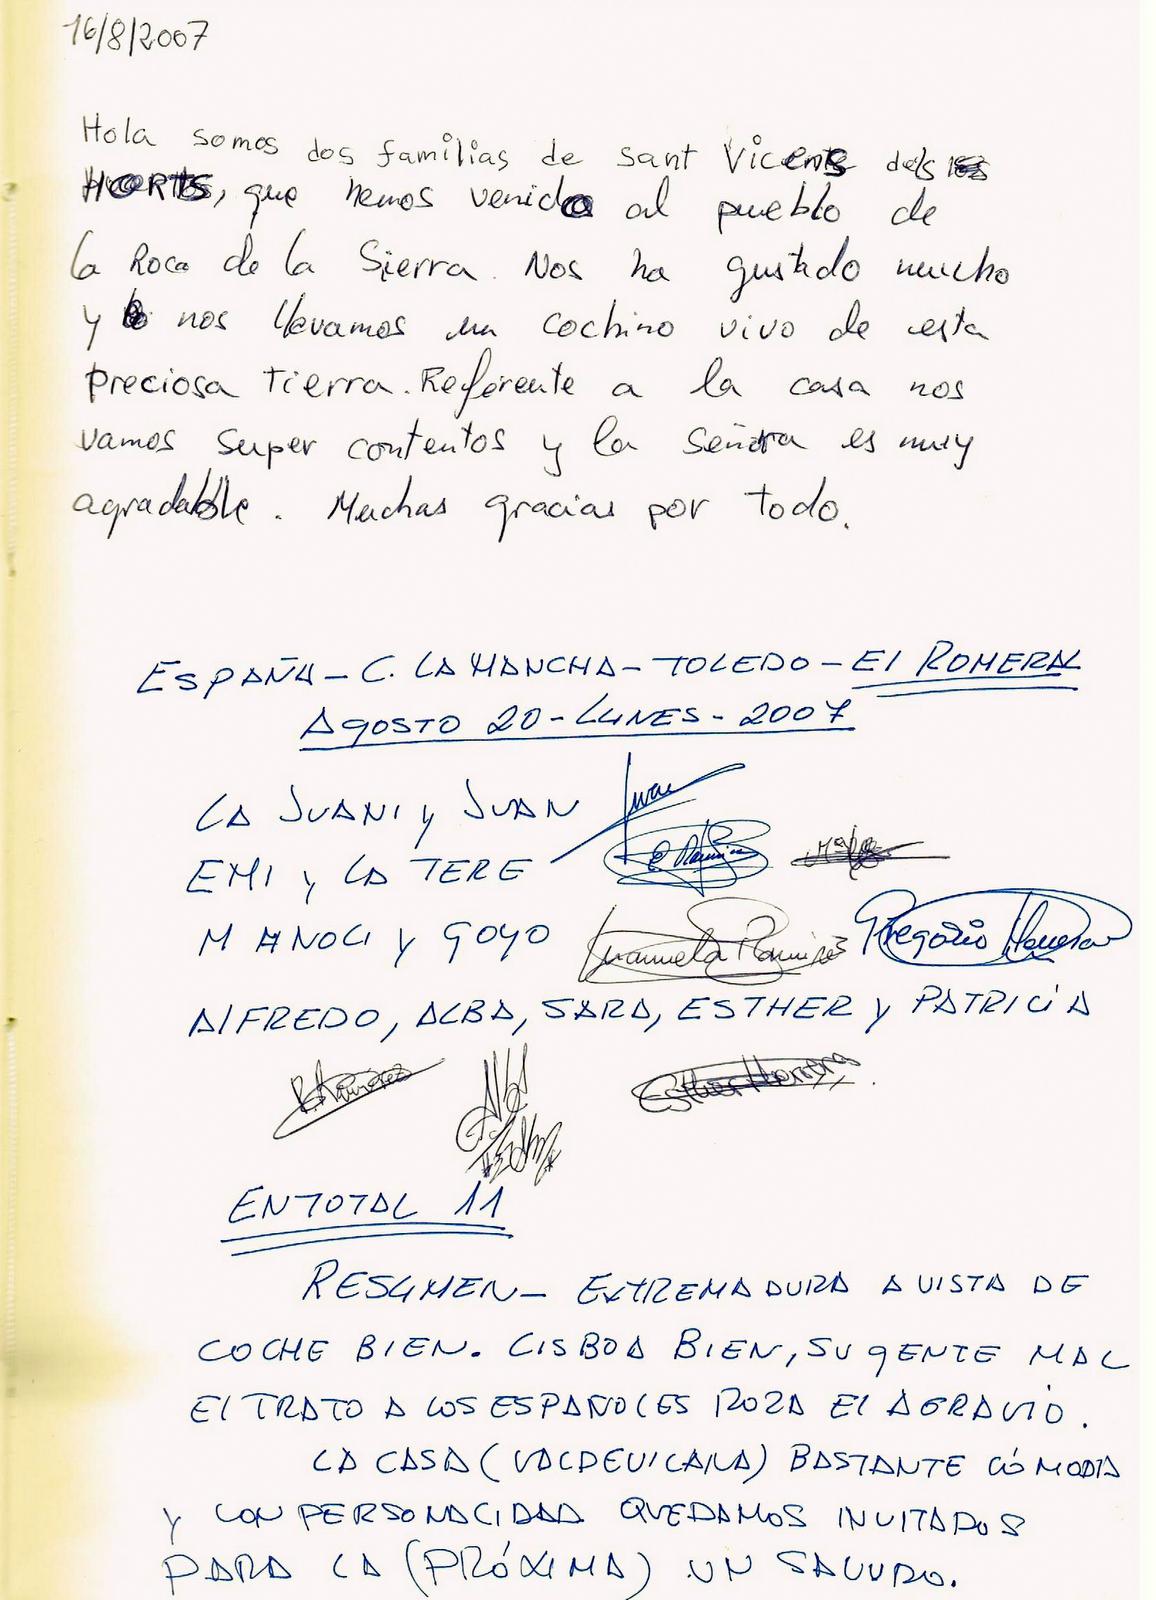 16/8/2007
Hola somos dos familias de Sant Vicens dels
HORTS, que hemos venido al pueblo de
la Roca de la Sierra. Nos ha gustado mucho
y nos llevamos un cochino vivo de esta
preciosa tierra. Referente a la casa nos
vamos super contentos y la señora es muy
agradable. Muchas gracias por todo.
ESPAÑA - C. LA MANCHA - TOLEDO - El ROMERAL
AGOSTO 20 - LUNES - 2007
LA JUANI y JUAN Juan
EMI y LA TERE E Ramirez
MANOLI y GOYO Manuela Ramirez Gregorio
AlFREDO, ALBA, SARA, ESTHER y PATRICIA
Esther Herrera
EN TOTAL 11
RESUMEN - EXTREMADURA A VISTA DE
COCHE BIEN. LISBOA BIEN, SU GENTE MAL
El TRATO A LOS ESPAÑOLES ROZA El AGRAVIO.
LA CASA ( ) BASTANTE CÓMODA
Y CON PERSONALIDAD QUEDAMOS INVITADOS
PARA LA (PRÓXIMA) UN SALUDO.